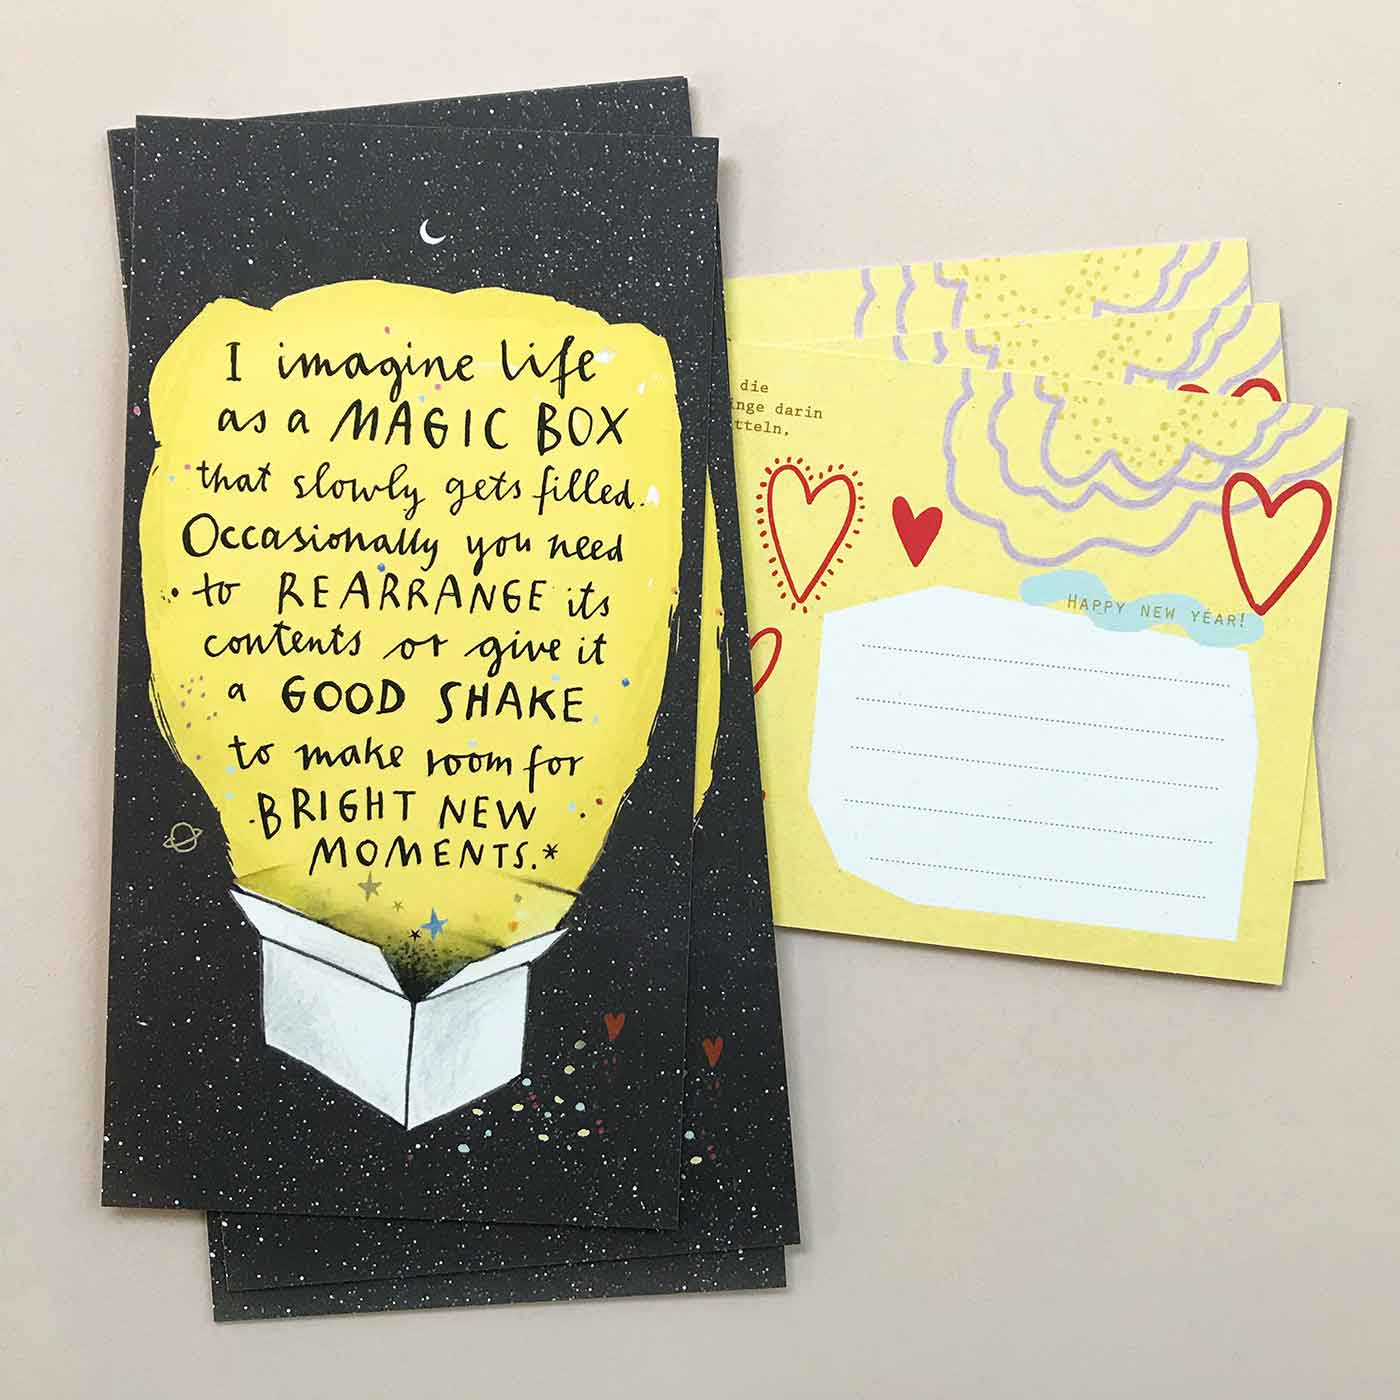 I imagine life
as a MAGIC BOX
that slowly gets filled.
Occasionally you need
to REARRANGE its
contents or give it
a GOOD SHAKE
to make room for
BRIGHT NEW
MOMENTS.*
die
darin
HAPPY NEW YEAR!